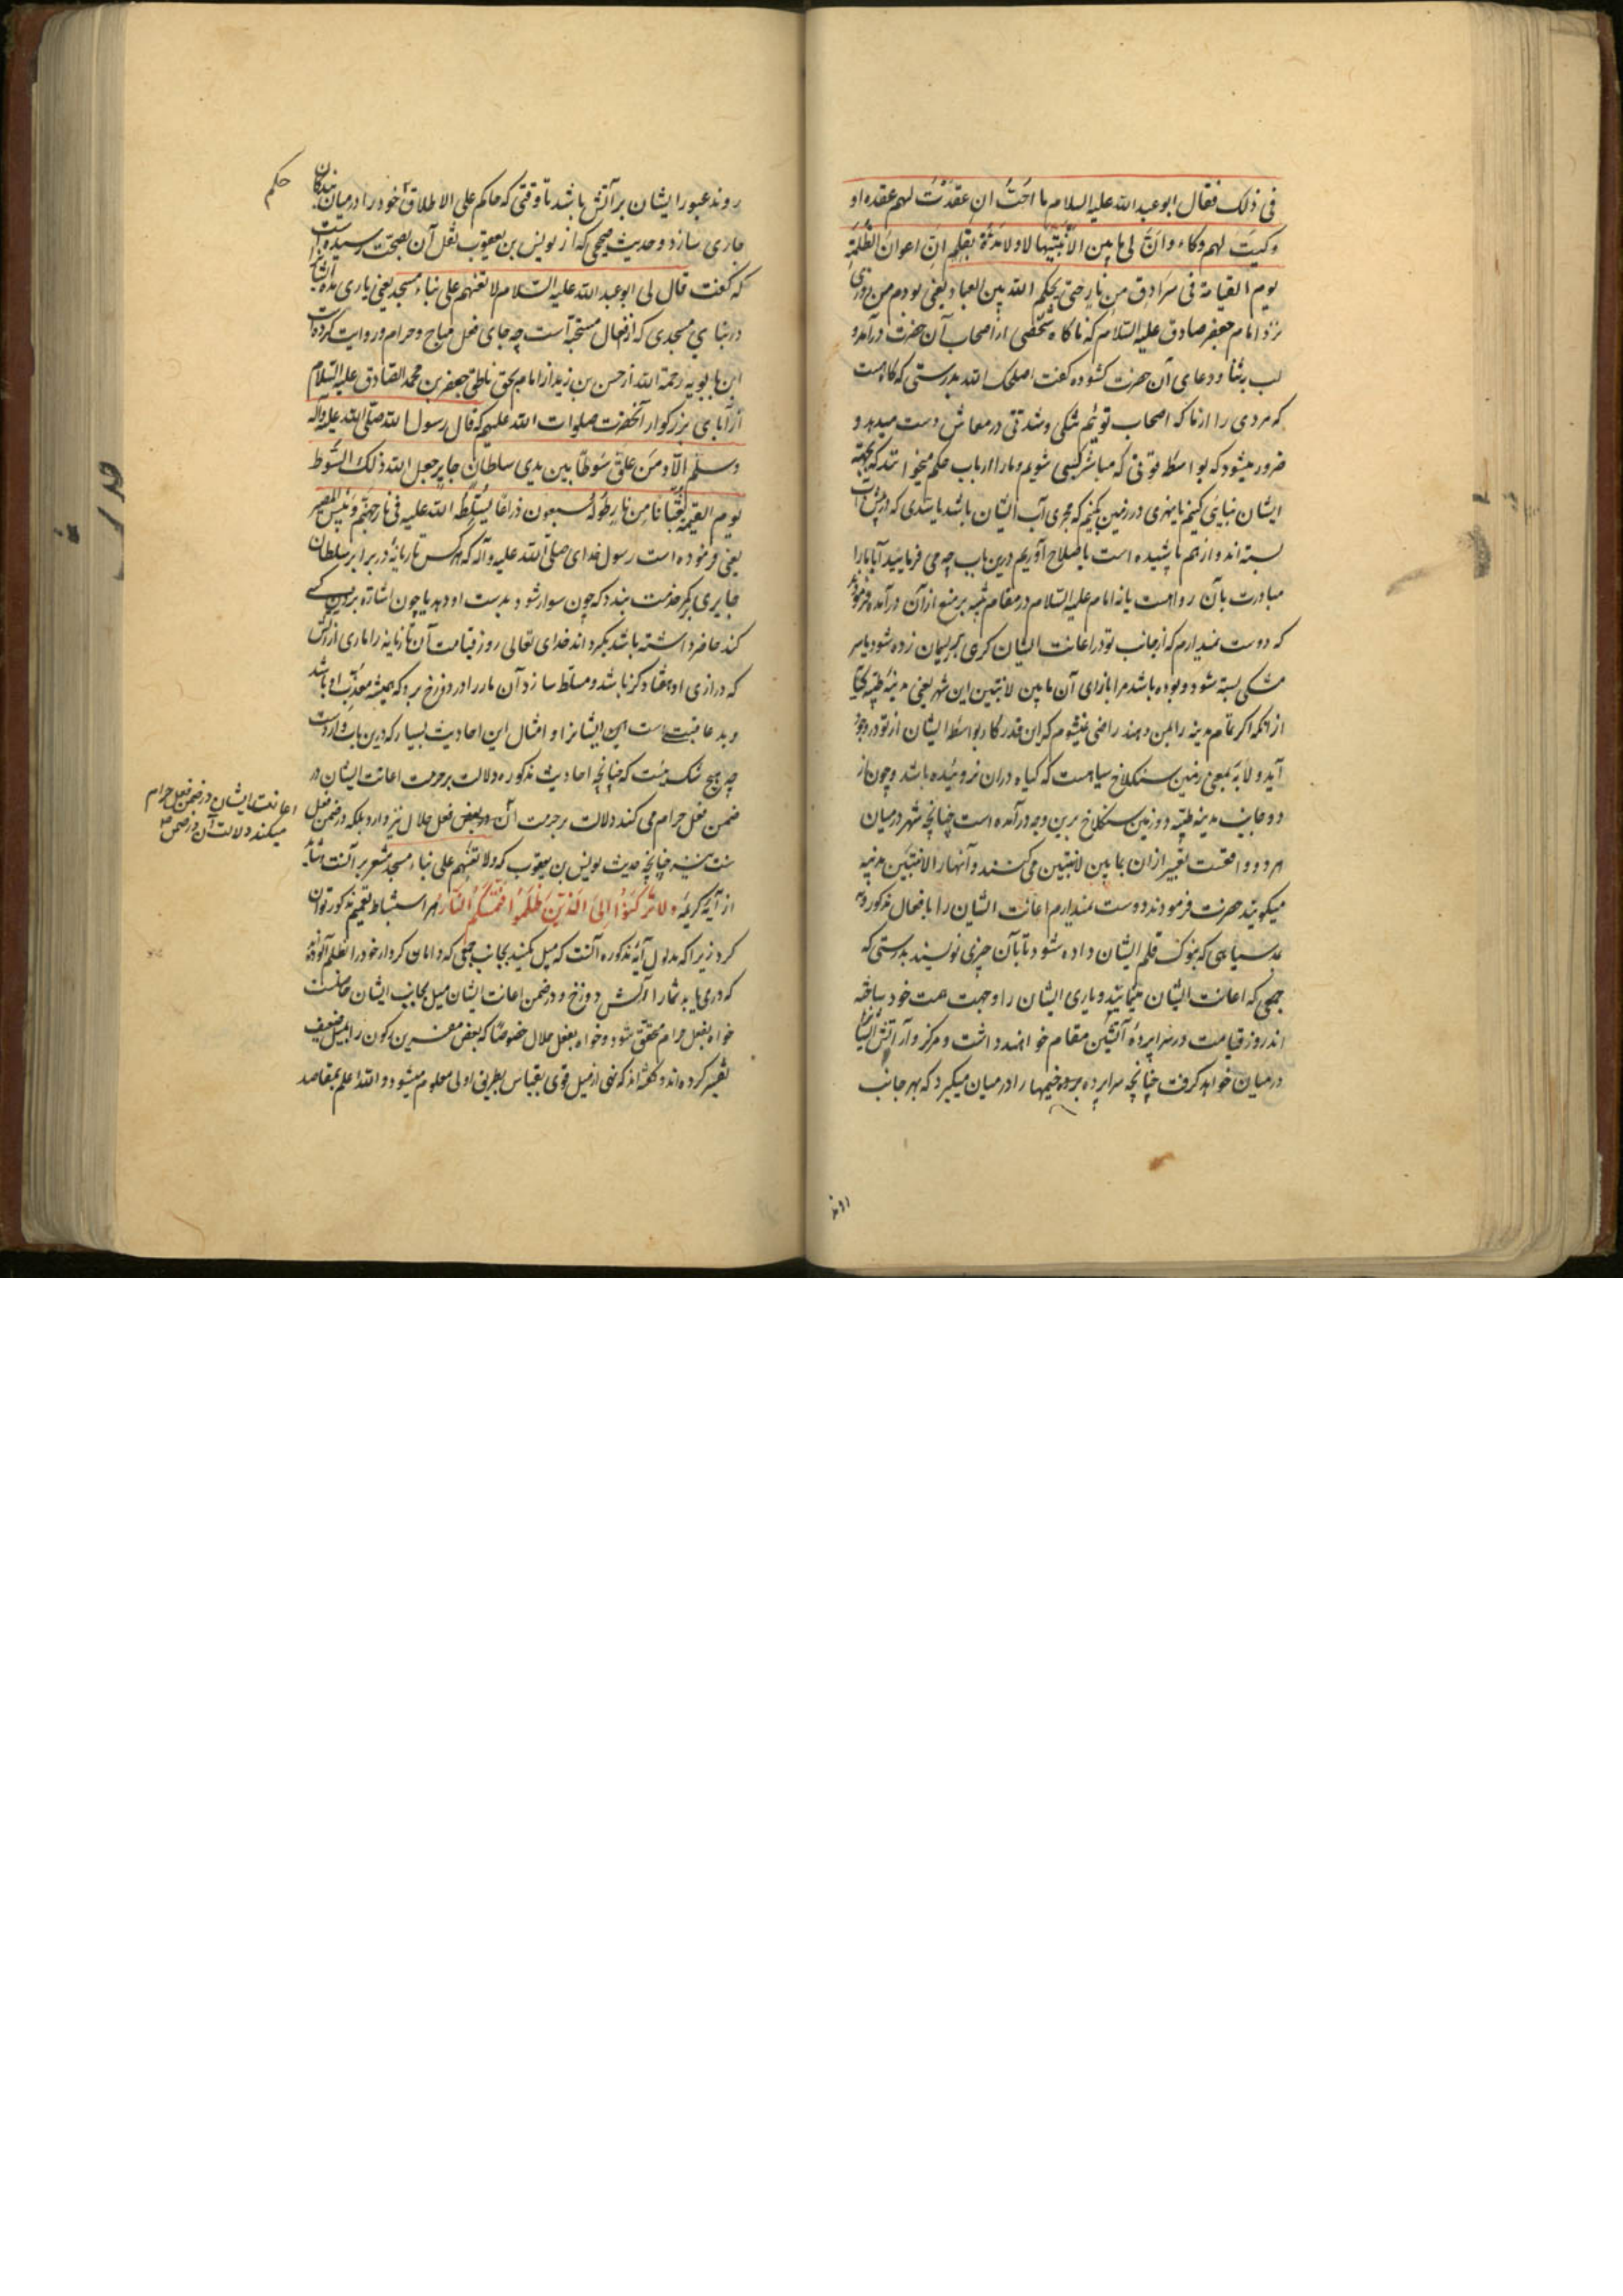 فی ذلک فقال ابو عبد الله علیه السلام ما احب ان عقدت لهم عقده او
وکیت لهم وکاء و ان لی ما بین لابتیها لا و لا مدة بقلم ان اعوان الظلمة
یوم القیامة فی سرادق من نار حتی یحکم الله بین العباد یعنی بودم من روزی
نزد امام جعفر صادق علیه السلام که ناکاه شخصی از اصحاب آن حضرت درآمد و
لب بثنا و دعای آن حضرت کشوده کفت اصلحک الله بدرستی که کاه هست
که مردی را از ما که اصحاب توئیم تنکی و شدتی در معاش دست میدهد و
ضرور میشود که بواسطه قوتی که مباشر کسبی شویم و ما را ارباب حکم میخوانند که بجهة
ایشان بنایی کنیم یا نهری در زمین بکنیم که مجری آب ایشان باشد یا سدی که در پیش آب
بسته اند و از هم پاشیده است باصلاح آوریم درین باب چه می فرمایید آیا ما را
مبادرت بآن رواست یا نه امام علیه السلام در مقام تنبیه بر منع از آن درآمده فرمودند
که دوست نمیدارم که از جانب تو در اعانت ایشان کرهی بر ریسمان زده شود یا سر
مشکی بسته شود و بوده باشد مرا بازای آن ما بین لابتین این شهر یعنی مدینه طیبه کنایت
از آنکه اگر تمام مدینه را بمن دهند راضی نمیشوم که این قدر کار بواسطه ایشان از تو در وجود
آید و لابه بمعنی زمین سنکلاخ سیاهست که کیاه دران نروئیده باشد و چون از
دو جانب مدینه طیبه دو زمین سنکلاخ برین وجه درآمده است چنانچه شهر درمیان
هر دو واقعست تعبیر ازان بما بین لابتین می کنند و آنها را لابتین مدینه
میکویند حضرت فرمودند دوست نمیدارم اعانت ایشان را بافعال مذکوره و نه
مد سیاهی که بنوک قلم ایشان داده شود تا بآن چیزی نویسند بدرستی که
جمعی که اعانت ایشان مینمایند و یاری ایشان را وجهت همت خود ساخته
اند روز قیامت در سراپرده آتشین مقام خواهند داشت و مرکز وار آتش ایشان را
درمیان خواهد کرفت چنانچه سراپرده خیمها را درمیان میکیرد که بهر جانب
روند
روند عبور ایشان بر آتش باشد تا وقتی که حاکم علی الاطلاق خود را درمیان بندکان
حکم
جاری سازد و حدیث صحیحی که از یونس بن یعقوب نقل آن بصحت رسیده اینست
که کفت قال لی ابو عبد الله علیه السلام لا تعنهم علی بناء مسجد یعنی یاری مده ایشانرا
در بنای مسجدی که از افعال مستحبه است چه جای فعل مباح و حرام و روایت کرده است
ابن بابویه رحمة الله از حسن بن زید از امام بحق ناطق جعفر بن محمد الصادق علیه السلام
از آبای بزرکوار آنحضرت صلوات الله علیهم که قال رسول الله صلی الله علیه و آله
و سلم الا و من علق سوطا بین یدی سلطان جایر جعل الله ذلک السوط
یوم القیمة ثعبانا من نار طوله سبعون ذراعا یسلطه الله علیه فی نار جهنم و بئس المصیر
یعنی فرموده است رسول خدای صلی الله علیه و آله که هر کس تازیانه در برابر سلطان
جایری بکمر خدمت بندد که چون سوار شود بدست او دهد یا چون اشاره بزدن کسی
کند حاضر داشته باشد بکرداند خدای تعالی روز قیامت آن تازیانه را ماری از آتش
که درازی او هفتاد کز باشد و مسلط سازد آن مار را در دوزخ برو که همیشه معذب او باشد
و بد عاقبتی است این ایشانرا و امثال این احادیث بسیار که درین باب وارد است
چه هیچ شک نیست که چنانچه احادیث مذکوره دلالت بر حرمت اعانت ایشان در
ضمن فعل حرام می کند دلالت بر حرمت آن در بعض فعل حلال نیز دارد بلکه در ضمن فعل
اعانت ایشان در ضمن فعل حرام
میکند دلالت آن در ضمن
سنت نیز چنانچه حدیث یونس بن یعقوب که و لا تعنهم علی بناء مسجد مشعر بر آنست
از آیه کریمه و لا ترکنوا الی الذین ظلموا فتمسکم النار هم استنباط تعمیم مذکور توان
کرد زیرا که مدلول آیه مذکوره آنست که میل مکنید بجانب جمعی که دامان کردار خود را بظلم آلوده اند
که درمی یابد شما را آتش دوزخ و در ضمن اعانت ایشان میل بجانب ایشان حاصلست
خواه بفعل حرام محقق شود و خواه بفعل حلال خصوصا که بعض مفسرین رکون را بمیل ضعیف
تفسیر کرده اند و کفته اند که نهی از میل قوی بقیاس بطریق اولی معلوم میشود و الله اعلم بمقاصد